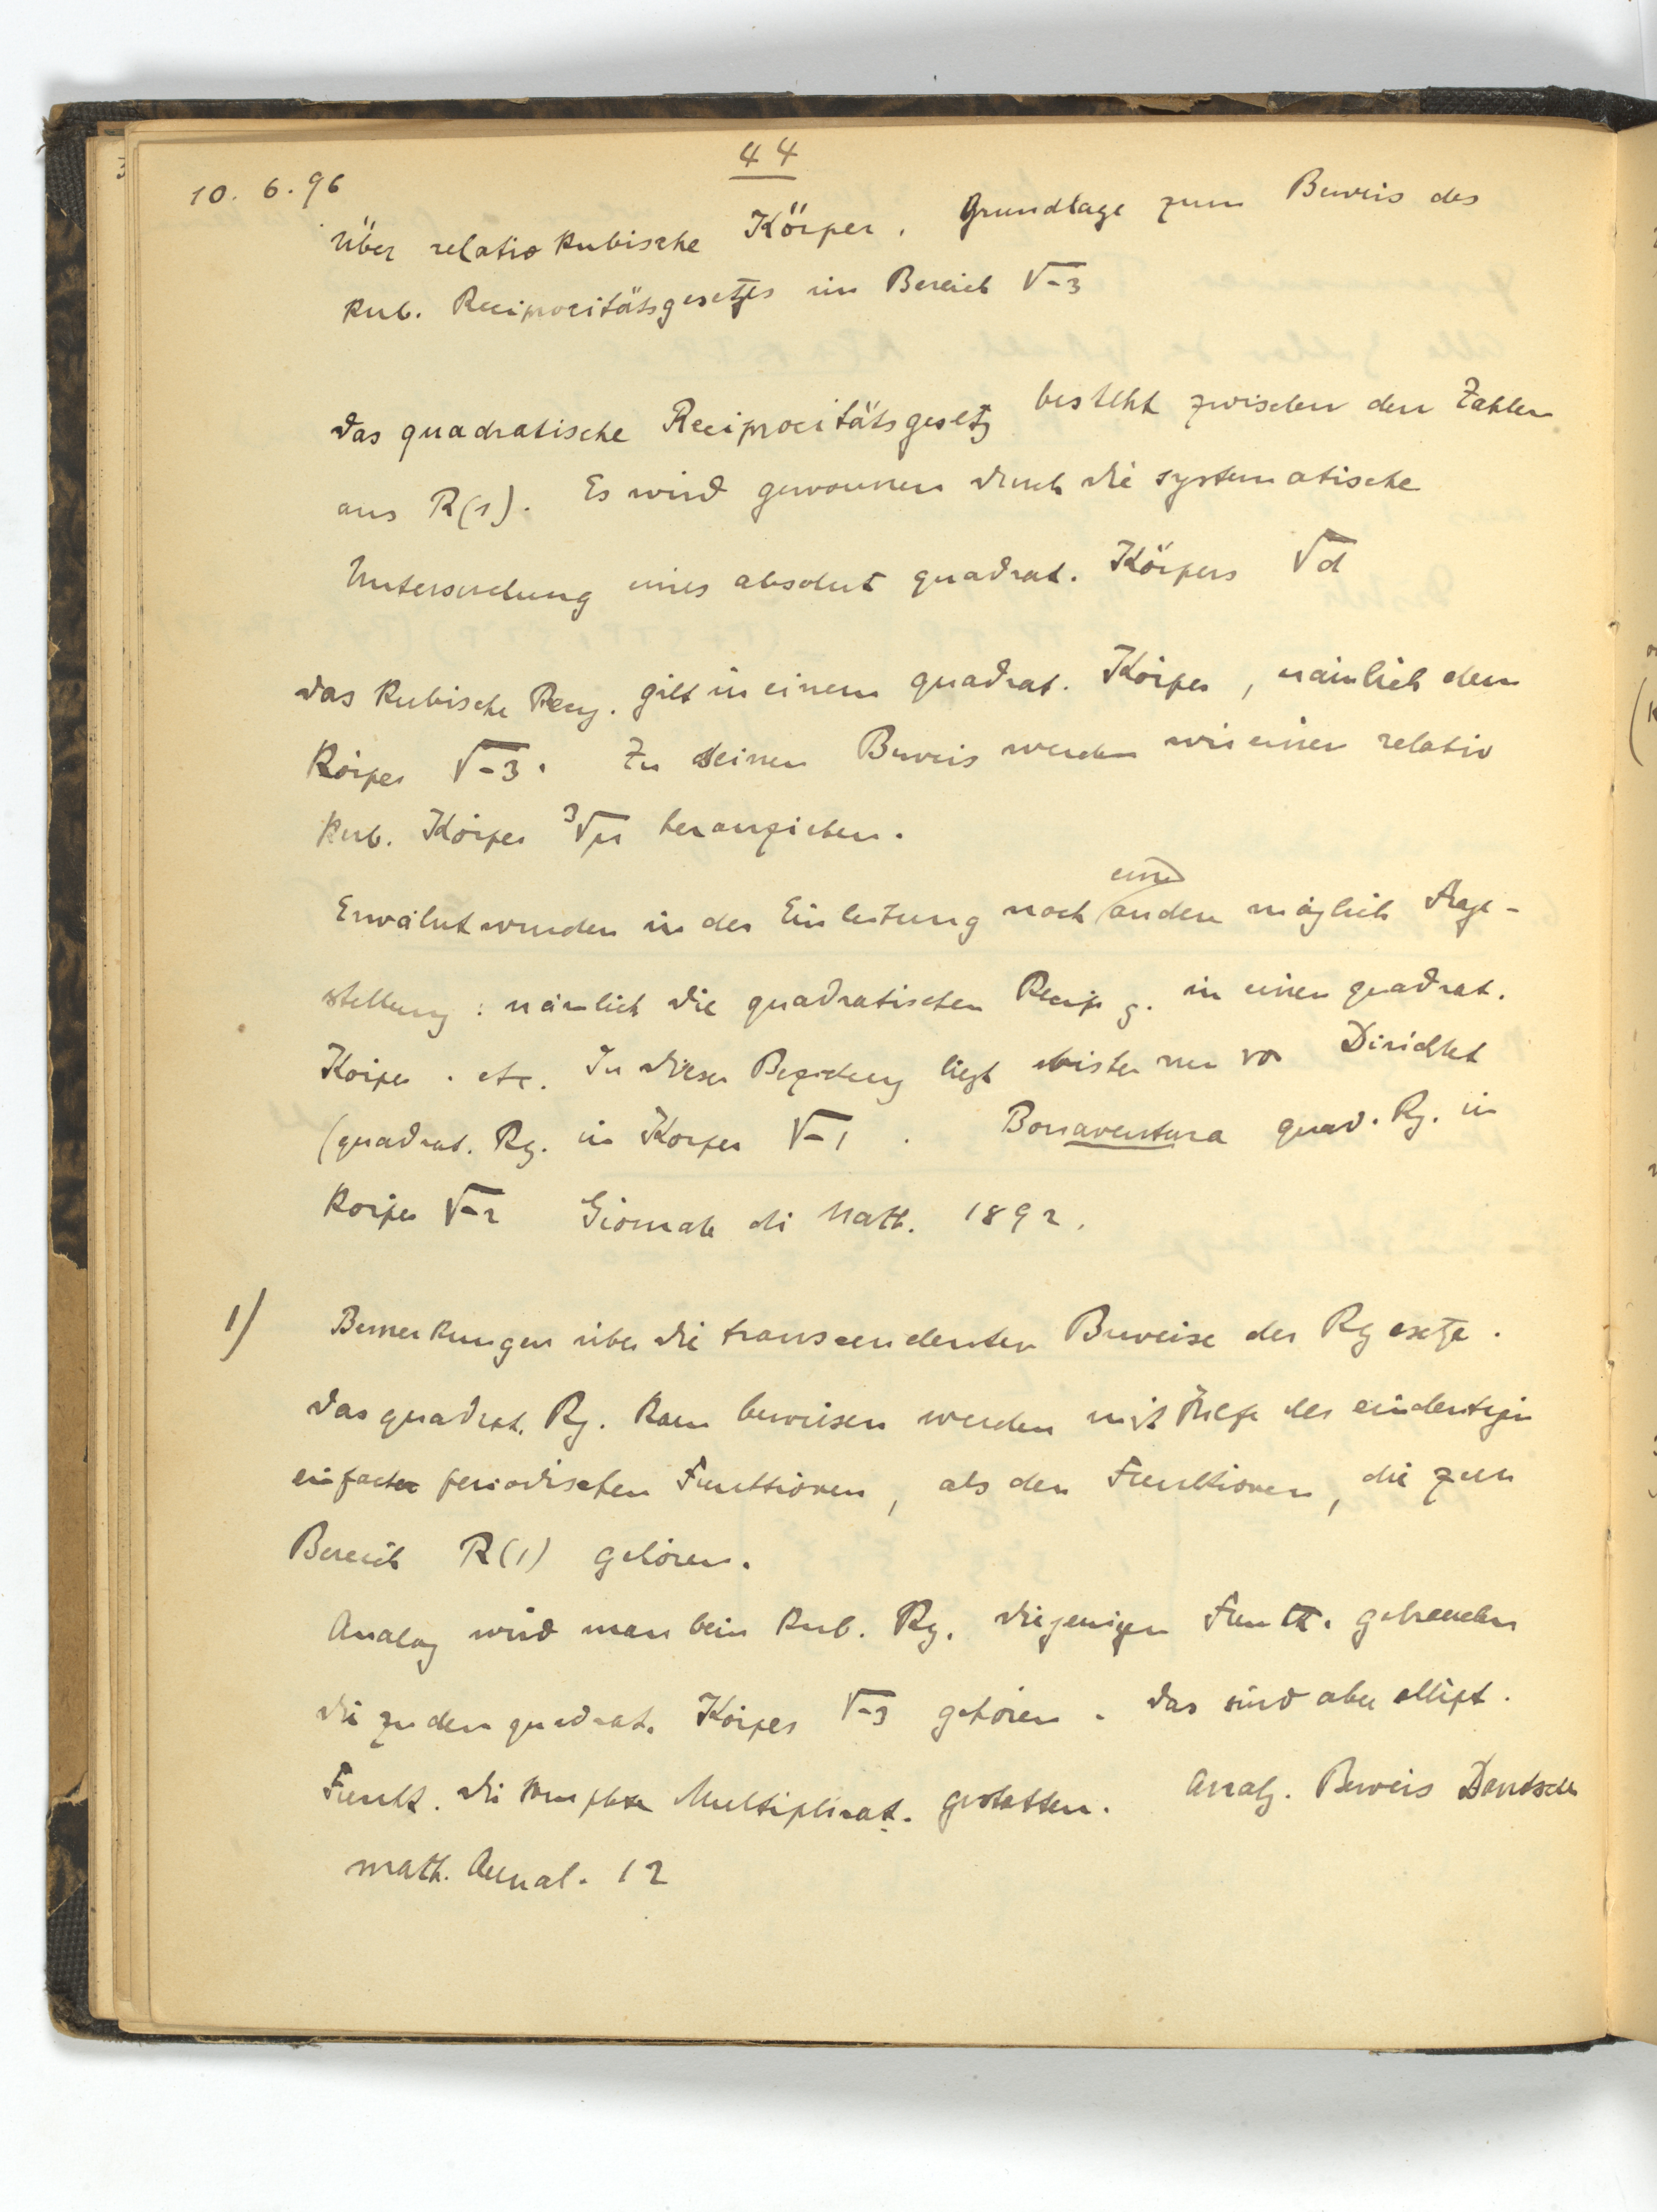 44
10. 6. 96
Über relativ kubische Körper. Grundlage zum Beweis des
kub. Reciprocitätsgesetzes im Bereich √-3
Das quadratische Reciprocitätsgesetz besteht zwischen den Zahlen
aus R(1). Es wird gewonnen durch die systematische
Untersuchung eines absolut quadrat. Körpers √d
Das kubische Rezg. gilt in einem quadrat. Körper, nämlich dem
Körper √-3. Zu seinem Beweis werden wir einen relativ
kub. Körper ³√μ heranziehen.
Erwähnt wurden in der Einleitung noch eine andere möglich Frage-
stellung: nämlich die quadratischen Recip g. in einem quadrat.
Körper. etc. In dieser Beziehung liegt bisher nur vor Dirichlet
(quadrat. Rg. in Körper √-1. Bonaventura quad. Rg. in
Körper √-2 Giornale di Math. 1892.
1) Bemerkungen über die transcendenten Beweise der Rgesetze.
Das quadrat. Rg. kann bewiesen werden mit Hilfe der eindeutigen
einfach periodischen Functionen, als den Funktionen, die zum
Bereich R(1) gehören.
Analog wird man beim kub. Rg. diejenigen Funkt. gebrauchen
die zu dem quadrat. Körper √-3 gehören. Das sind aber ellipt.
Funkt. die komplexe Multiplicat. gestatten. Analg. Beweis Dantscher
math. Annal. 12